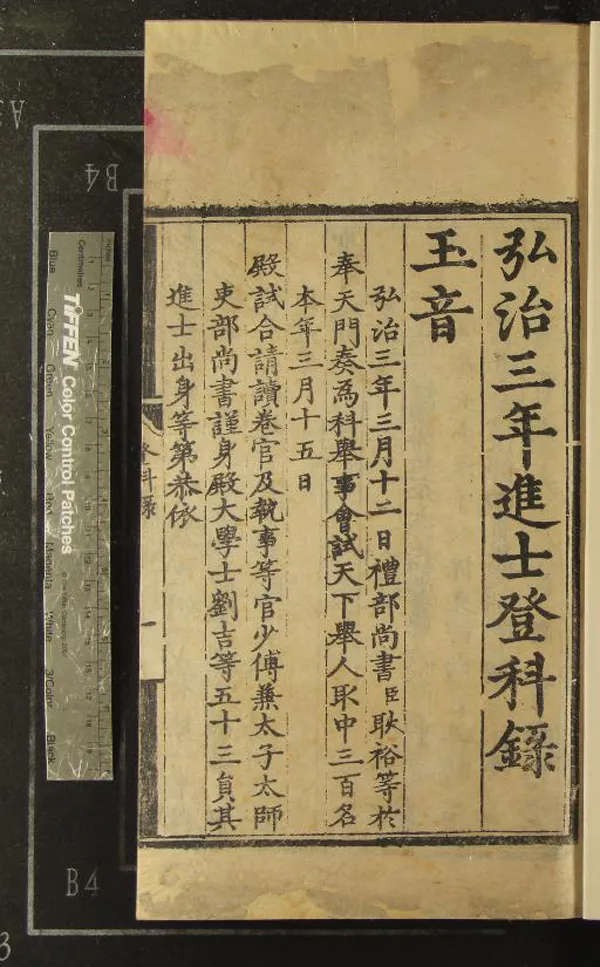 弘治三年進士登科錄
玉音
弘治三年三月十二日禮部尚書臣耿裕等於
奉天門奏爲科舉事會試天下舉人取中三百名
本年三月十五日
殿試合請讀卷官及執事等官少傅兼太子太師
吏部尚書謹身殿大學士劉吉等五十三員其
進士出身等第恭依
登科錄
一
Inches
Centimetres
TIFFEN Color Control Patches
Blue
Cyan
Green
Yellow
Red
Magenta
White
3/Color
Black
B4
B4
A3
3